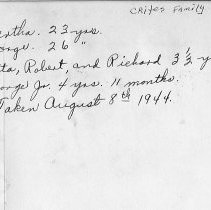 CRITES FAMILY
rtha. 23 yrs.
orge. 26 "
ta, Robert, and Richard 3 ½ y
orge Jr. 4 yrs. 11 months.
Taken August 8th 1944.